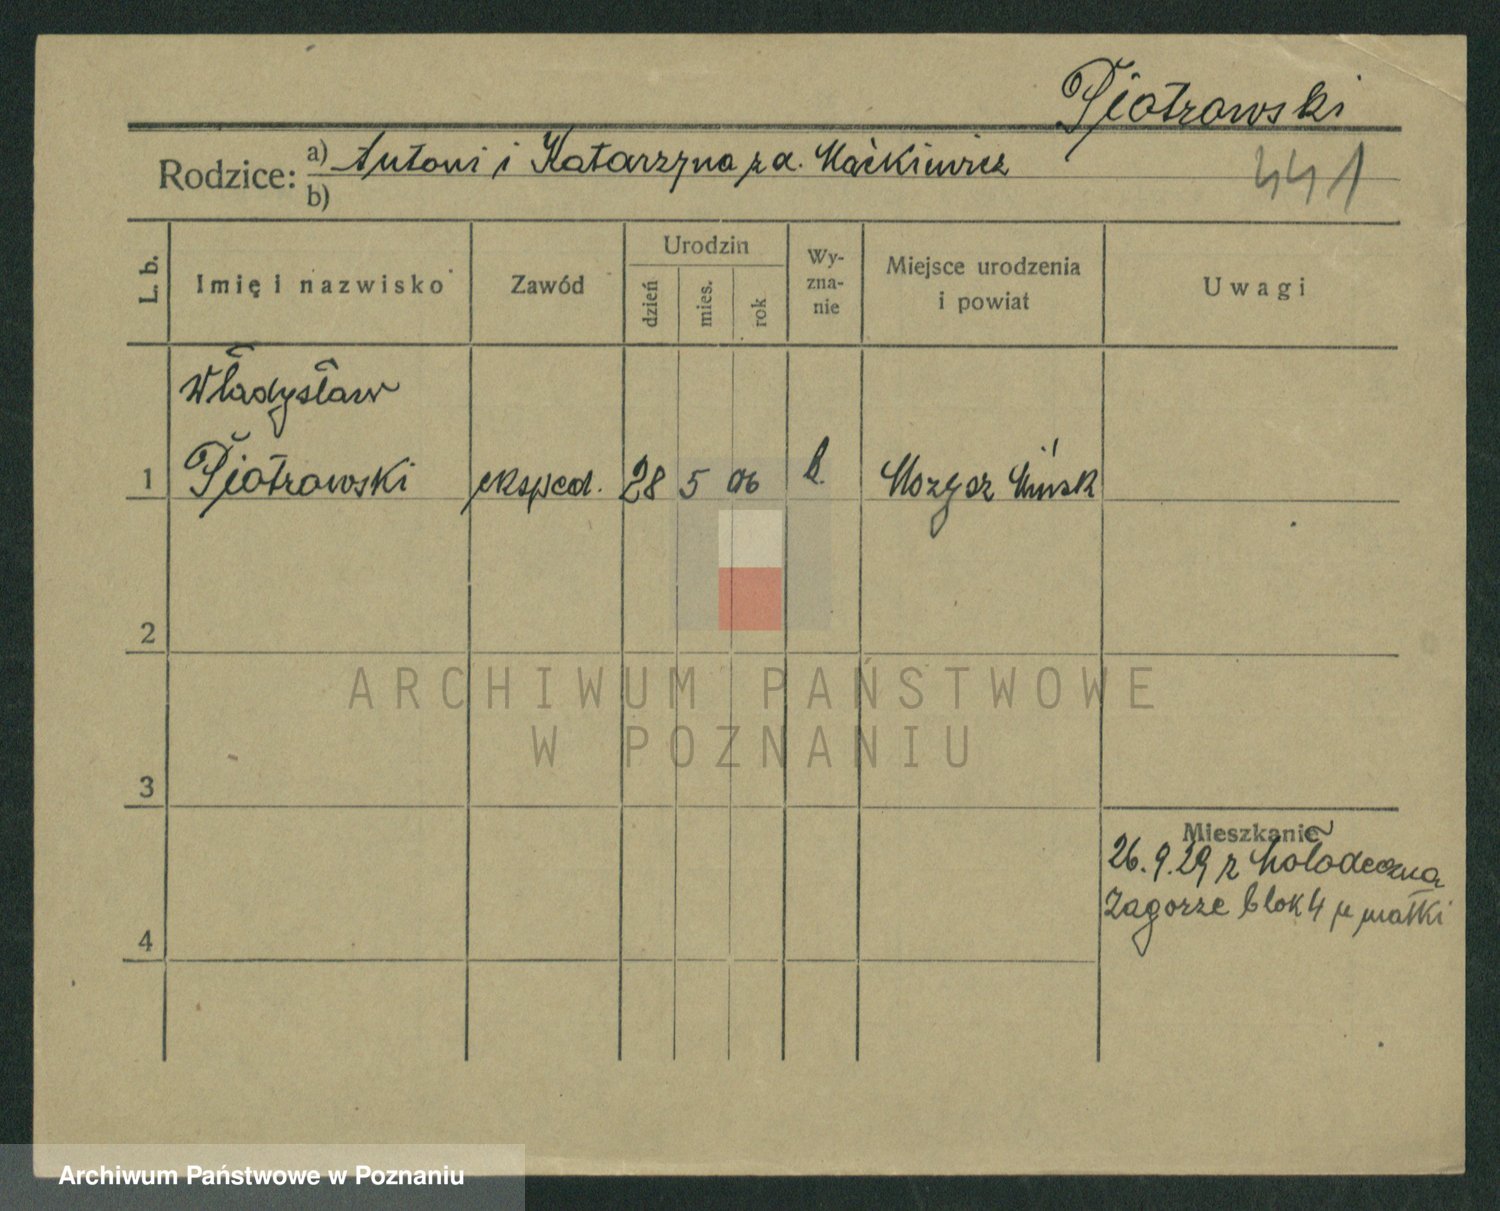 Piotrowski
Rodzice: a) Antoni i Katarzyna z d. Maćkiewicz
441
b)
L. b.
Imię i nazwisko
Zawód
Urodzin
dzień
mies.
rok
Wy-
zna-
nie
Miejsce urodzenia
i powiat
Uwagi
Władysław
1 Piotrowski eksped. 28 5 06 k. Mozyrz Mińsk
2
ARCHIWUM PAŃSTWOWE
W POZNANIU
3
Mieszkanie
26.9.29 z Mołodeczna
Zagorze blok 4 u matki
4
Archiwum Państwowe w Poznaniu